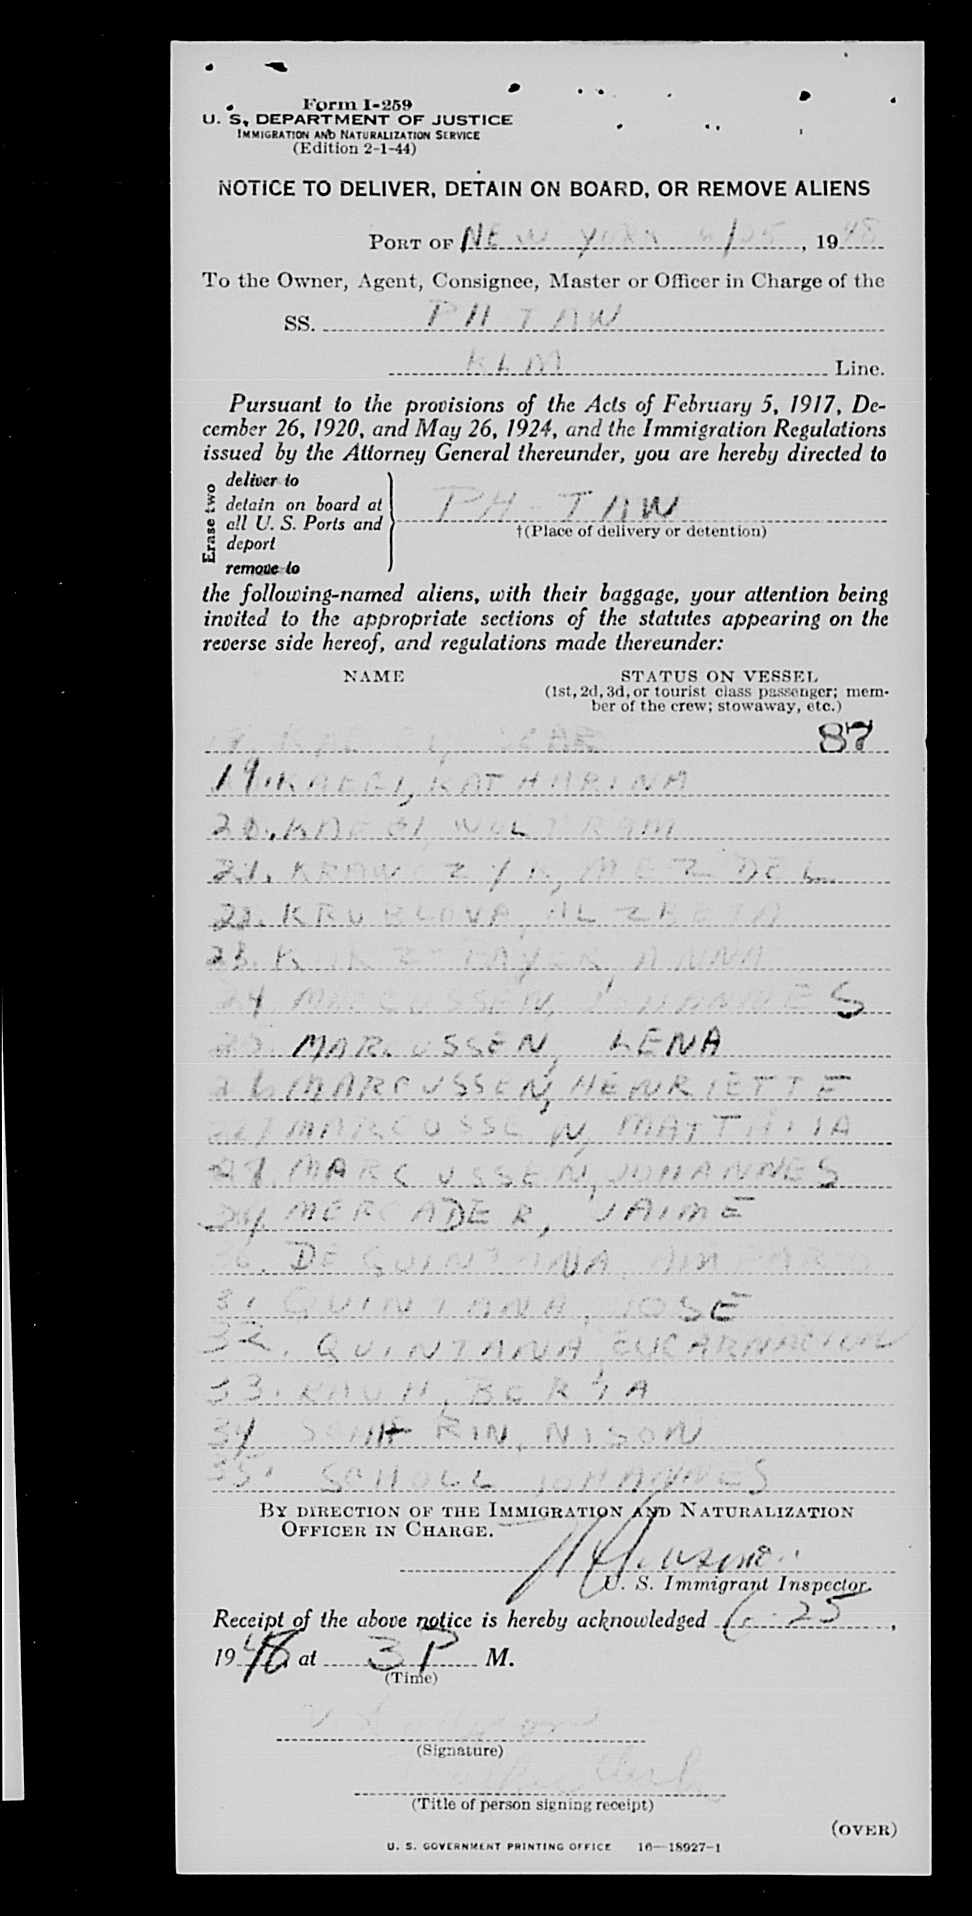 Form I-259
U. S. DEPARTMENT OF JUSTICE
IMMIGRATION AND NATURALIZATION SERVICE
(Edition 2-1-44)
NOTICE TO DELIVER, DETAIN ON BOARD, OR REMOVE ALIENS
PORT OF NEW YORK 6/25, 1948
To the Owner, Agent, Consignee, Master or Officer in Charge of the
SS. PH TAW
KLM Line.
Pursuant to the provisions of the Acts of February 5, 1917, De-
cember 26, 1920, and May 26, 1924, and the Immigration Regulations
issued by the Attorney General thereunder, you are hereby directed to
Erase two
deliver to
detain on board at
all U. S. Ports and
deport
remove to
PH-TAW
†(Place of delivery or detention)
the following-named aliens, with their baggage, your attention being
invited to the appropriate sections of the statutes appearing on the
reverse side hereof, and regulations made thereunder:
NAME STATUS ON VESSEL
(1st, 2d, 3d, or tourist class passenger; mem-
ber of the crew; stowaway, etc.)
87
19. KAEBI, KATHARINA
20. KAEBI, WOLFRAM
21. KRAWCZYK, MEZDEL
22. KRUBLOVA, ALZBETA
23. ANNA
24 MARCUSSEN, JOHANNES
25. MARCUSSEN, LENA
26 MARCUSSEN, HENRIETTE
MARCUSSEN,
MARCUSSEN, JOHANNES
MERCADER, JAIME
30. DE QUINTANA, AMPARO
31 QUINTANA, JOSE
32. QUINTANA
33. RAUH, BERTA
34 NISON
35. SCHOLL JOHANNES
BY DIRECTION OF THE IMMIGRATION AND NATURALIZATION
OFFICER IN CHARGE.
U. S. Immigrant Inspector.
Receipt of the above notice is hereby acknowledged 6-25,
1948 at 3 P M.
(Time)
(Signature)
Clerk
(Title of person signing receipt)
(OVER)
U. S. GOVERNMENT PRINTING OFFICE 16—18927-1